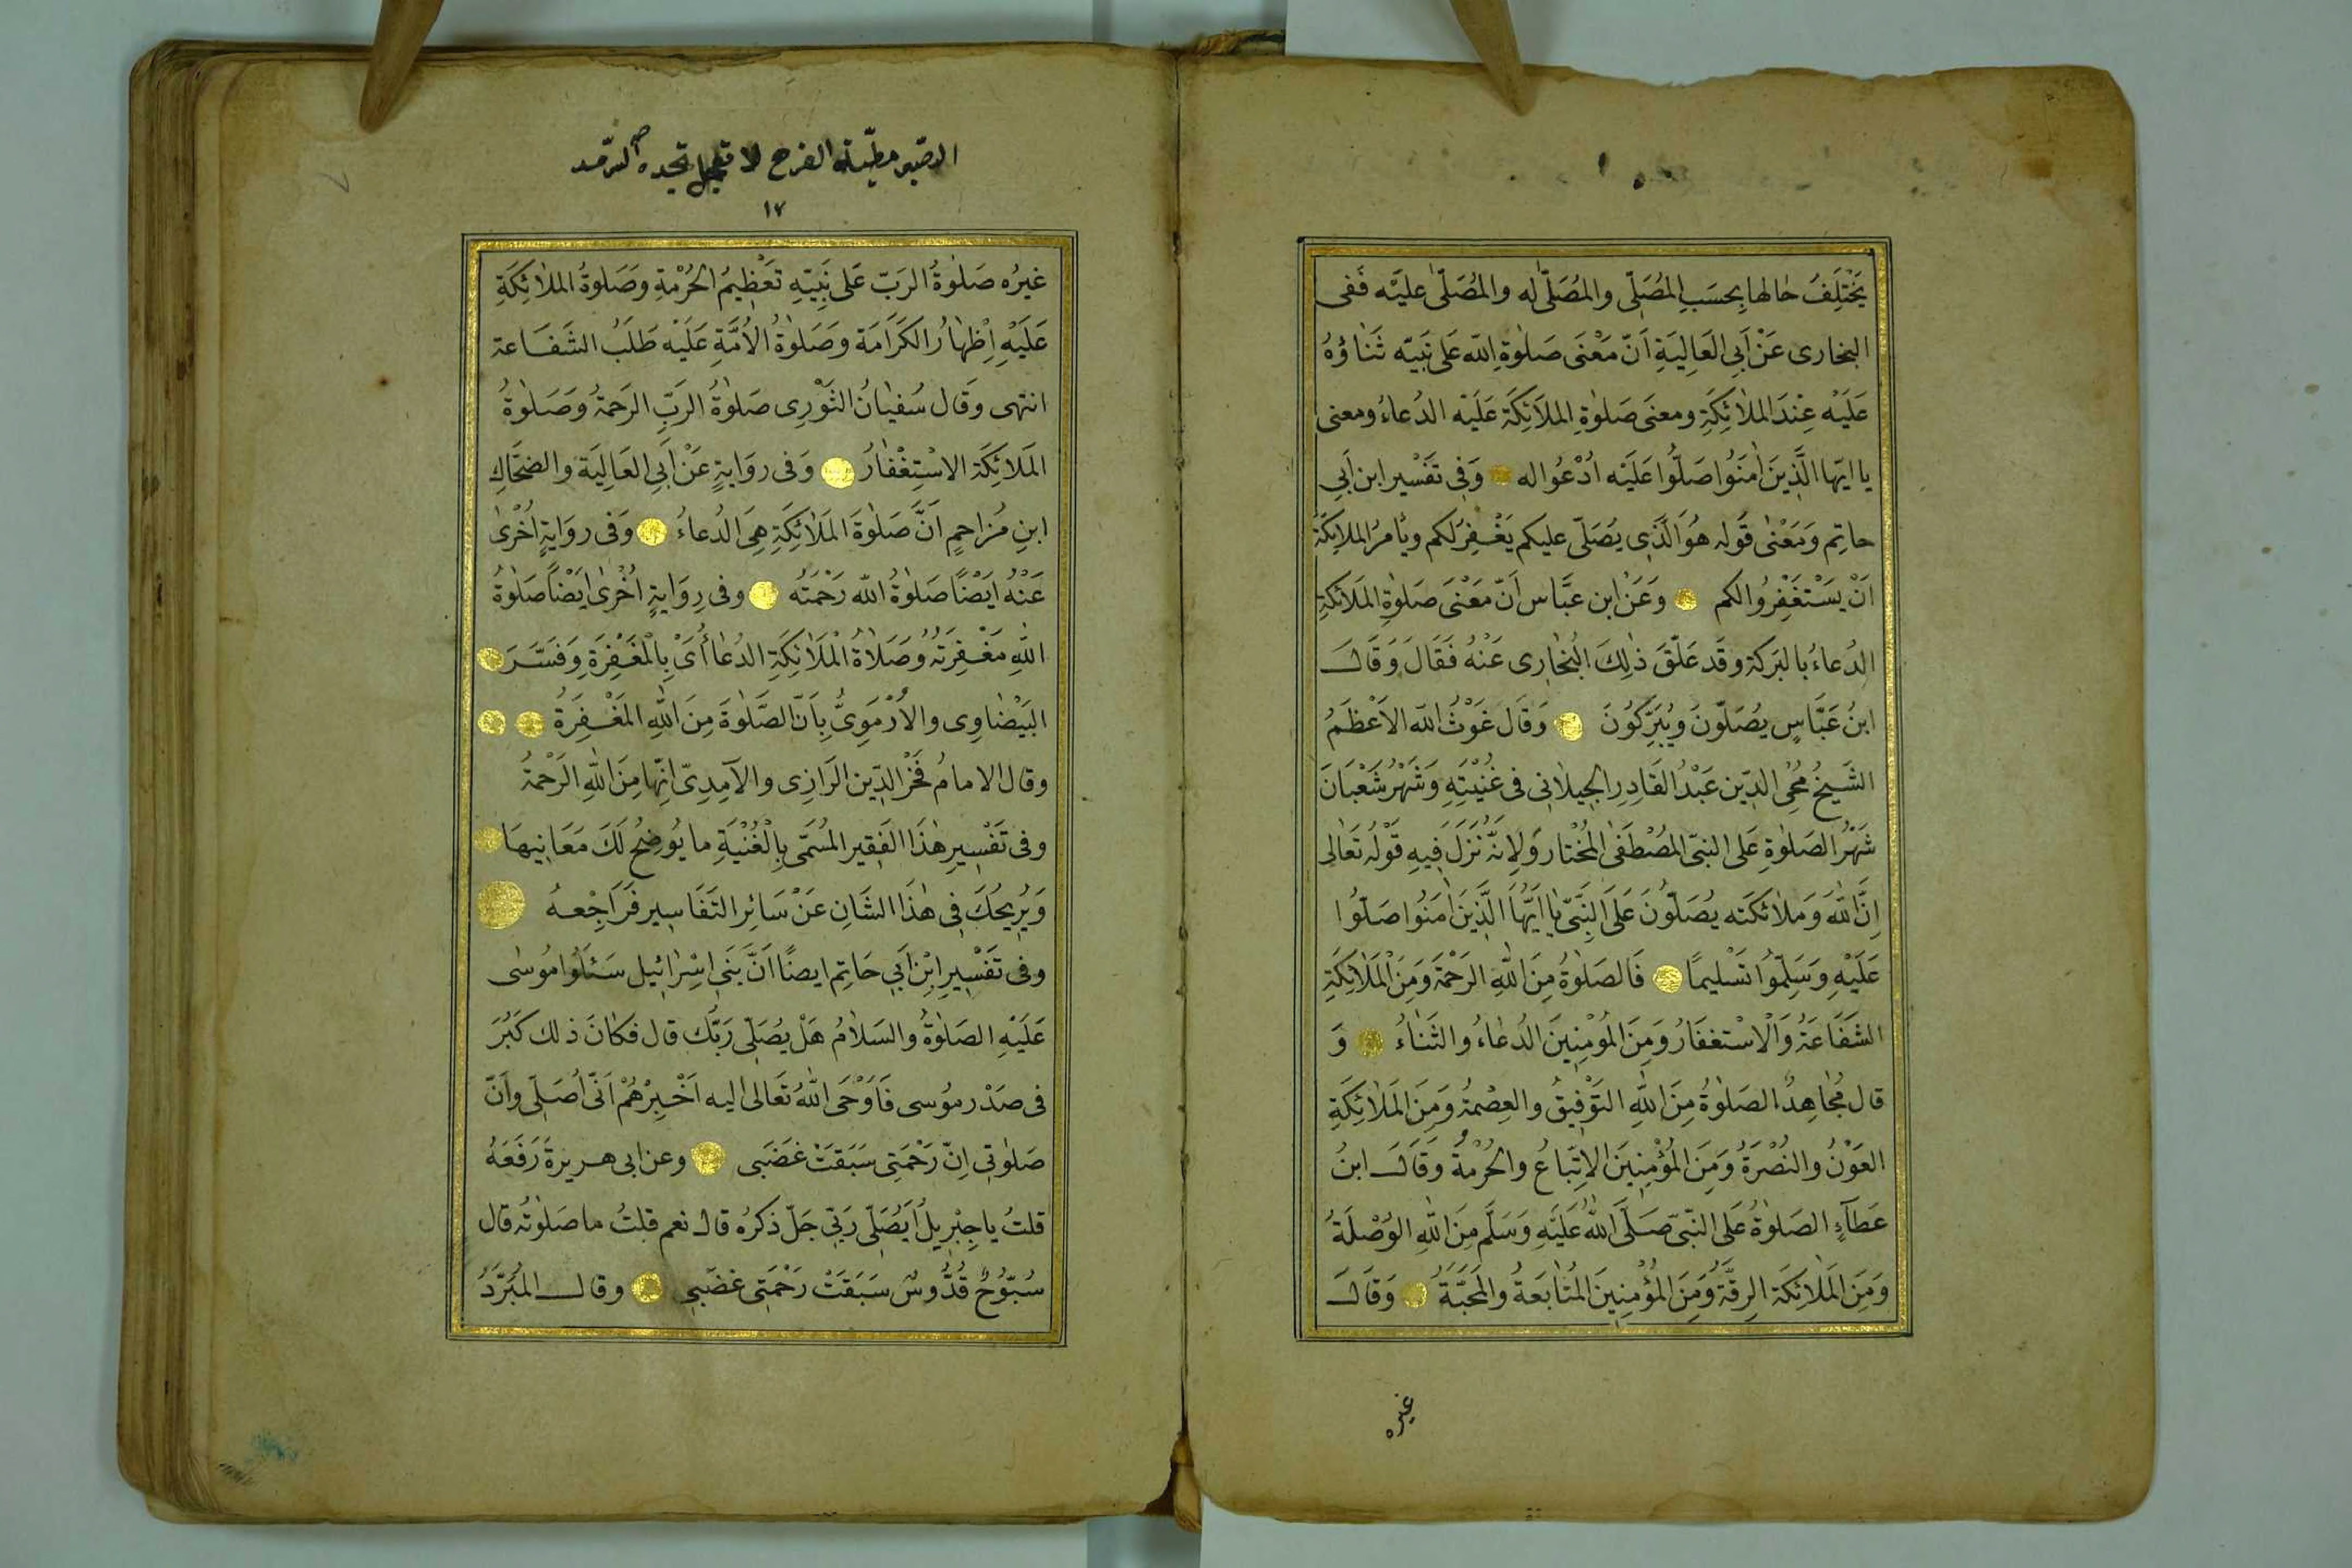 يَخْتَلِفُ حٰالها بِحسَبِ المُصَلّى والمُصَلّىٰ له والمُصَلّىٰ عليَْه فَفى
البخارى عَنْ اَبِى العَالِيَةِ اَنّ مَعْنَى صَلوٰةِ اللّه عَلى نَبيّه ثَنٰاؤُهُ
عَلَيْه عِنْدَ المَلٰائِكَةِ ومعنَى صَلوٰةِ المَلاَئِكَة عَلَيْه الدُعاءُ ومعنى
يا ايّها الَّذِينَ اٰمَنُوا صَلُّوا عَلَيْه اُدْعُوا له وَفِى تَفسْير ابن اَبِى
حاتِم وَمَعْنٰى قَولِه هُوَ الَّذِى يُصَلّى عليكم يَغْفِرُ لكم ويأمرُ المَلٰائِكَةَ
اَنْ يَسْتَغْفِرُوا لكم وَعَنْ ابن عبَّاس اَنّ مَعْنَى صَلوٰةِ المَلاَئكةِ
الدُعاءُ بالبَركة وقَد عَلّقَ ذٰلِكَ البُخٰارى عَنْهُ فَقَالَ وَقَالَ
ابنُ عَبَّاسٍ يُصَلّونَ ويُبَرِّكُونَ وَقَال غَوْثُ اللّه الاَعْظَمُ
الشَيخُ مُحْىِ الدّين عَبْدُ القَادِرِ الجِيلاٰنى فى غُنْيَتِهِ وَشَهْرُ شَعْبَانَ
شَهْرُ الصَلوٰةِ عَلى النبىّ المُصْطَفَى المُخْتار وَلِاَنّهُ نُزّلَ فيهِ قَوْلُه تَعالى
اِنَّ اللّٰهَ وَمَلاٰئكَته يُصَلّونَ عَلَى النَّبىّ يٰا اَيُّهَا الَّذِينَ اٰمَنُوا صَلّوُا
عَلَيْهِ وَسَلِّموُا تَسْليمًا فَالصَلوٰةُ مِنَ اللّٰهِ الرَحْمَة وَمِنَ الْمَلاٰئِكَةِ
الشَفَاعَةُ وَالْاسْتغفَارُ وَمِنَ المُؤمِنِينَ الدُعٰاءُ والثَنٰاءُ وَ
قال مُجٰاهِدٌ الصَلوٰةُ مِنَ اللّٰهِ التَوْفِيقُ والعِصْمةُ وَمِنَ المَلاٰئِكَةِ
العَوْنُ والنُصْرَةُ وَمِنَ المُؤْمِنِينَ الاِتِّبَاعُ والحُرْمَةُ وَقَالَ ابنُ
عَطآءٍ الصَلوٰةُ عَلى النّبىّ صَلَّى اللّٰهُ عَلَيْهِ وَسَلَّم مِنَ اللّٰهِ الوُصْلَةُ
وَمِنَ المَلاٰئِكَة الرِقَّةُ وَمِنَ المُؤْمِنِينَ المُتَابَعَةُ والمَحَبّةُ وَقَالَ
غيره
الصّبر مطيّة الفرح لا تعجل تجده
١٧
غيرُه صَلوٰةُ الرَبّ عَلى نَبِيّهِ تَعْظِيمُ الحُرْمَةِ وَصَلوةُ المَلاٰئِكَةِ
عَلَيْهِ اِظْهارُ الكَرَامَة وَصَلوٰةُ الاُمَّةِ عَلَيْه طَلَبُ الشَفَاعة
انتهى وَقَال سُفيٰانُ الثَوْرِى صَلوٰةُ الربِّ الرَحمةُ وَصَلوٰةُ
المَلائِكَة الاسْتِغْفٰارُ وَفى روَايةٍ عَنْ اَبِى العَالِيَة والضحَّاكِ
ابنِ مُزاحمٍ اَنَّ صَلوٰةَ المَلاٰئِكَةِ هِىَ الدُعاءُ وَفى روَايةٍ اُخْرىٰ
عَنْهُ اَيْضًا صَلوٰةُ اللّٰه رَحْمَتُه وفى رِوَايةٍ اُخْرىٰ اَيْضًا صَلوٰةُ
اللّٰهِ مَغْفِرَتُه وَصَلاٰةُ الْمَلاٰئِكَةِ الدُعٰاأُ اَىْ بِالْمَغْفِرَةِ وَفَسَّرَ
البَيْضٰاوِى والاُرْمَوِىُّ بِاَنّ الصَّلوٰةَ مِنَ اللّٰهِ المَغْفِرَةُ
وقال الامامُ فَخْرُ الدّين الرَازِى والآمِدِىّ اِنّها مِنَ اللّٰهِ الرَحْمَةُ
وفى تَفْسِيرِ هٰذَا الفَقِير المُسَمّى بِالْغُنْيَةِ ما يُوضِحُ لَكَ مَعَانِيهَا
وَيُرِيحُكَ فِى هٰذَا الشَانِ عَنْ سَائِرِ التَفَاسِير فَرَاجِعْهُ
وفى تَفسْيرِ ابْنِ اَبِى حَاتِم ايضًا اَنَّ بَنى اِسْرٰائِيل سَئَلُوا مُوسٰى
عَلَيْهِ الصَلوٰةُ والسَلاٰمُ هَلْ يُصَلّى رَبُّك قال فكٰانَ ذلك كَبُرَ
فى صَدْر مُوسى فَاَوْحَى اللّٰهُ تَعَالى اليه اَخْبِرْهُمْ اَنّى اُصَلّى وَاَنّ
صَلوٰتِى اِنّ رَحْمَتِى سَبَقَتْ غَضَبى وعن ابى هريرةَ رَفَعَهُ
قلتُ يا جِبْرِيلُ اَيُصَلّى رَبِّى جَلّ ذكرُه قال نعم قلتُ ما صَلوٰتُه قال
سُبّوُحٌ قُدُّوسٌ سَبَقَتْ رَحْمَتِى غَضَبِى وقال المُبَرَّدُ